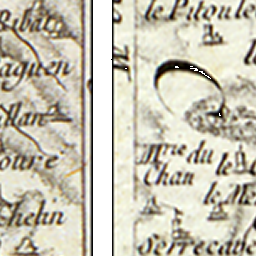 Ribat
aguen
llan
ouré
chelin
le Pitoule
le
M^rie du
Chan
le
le Me
Serrecave